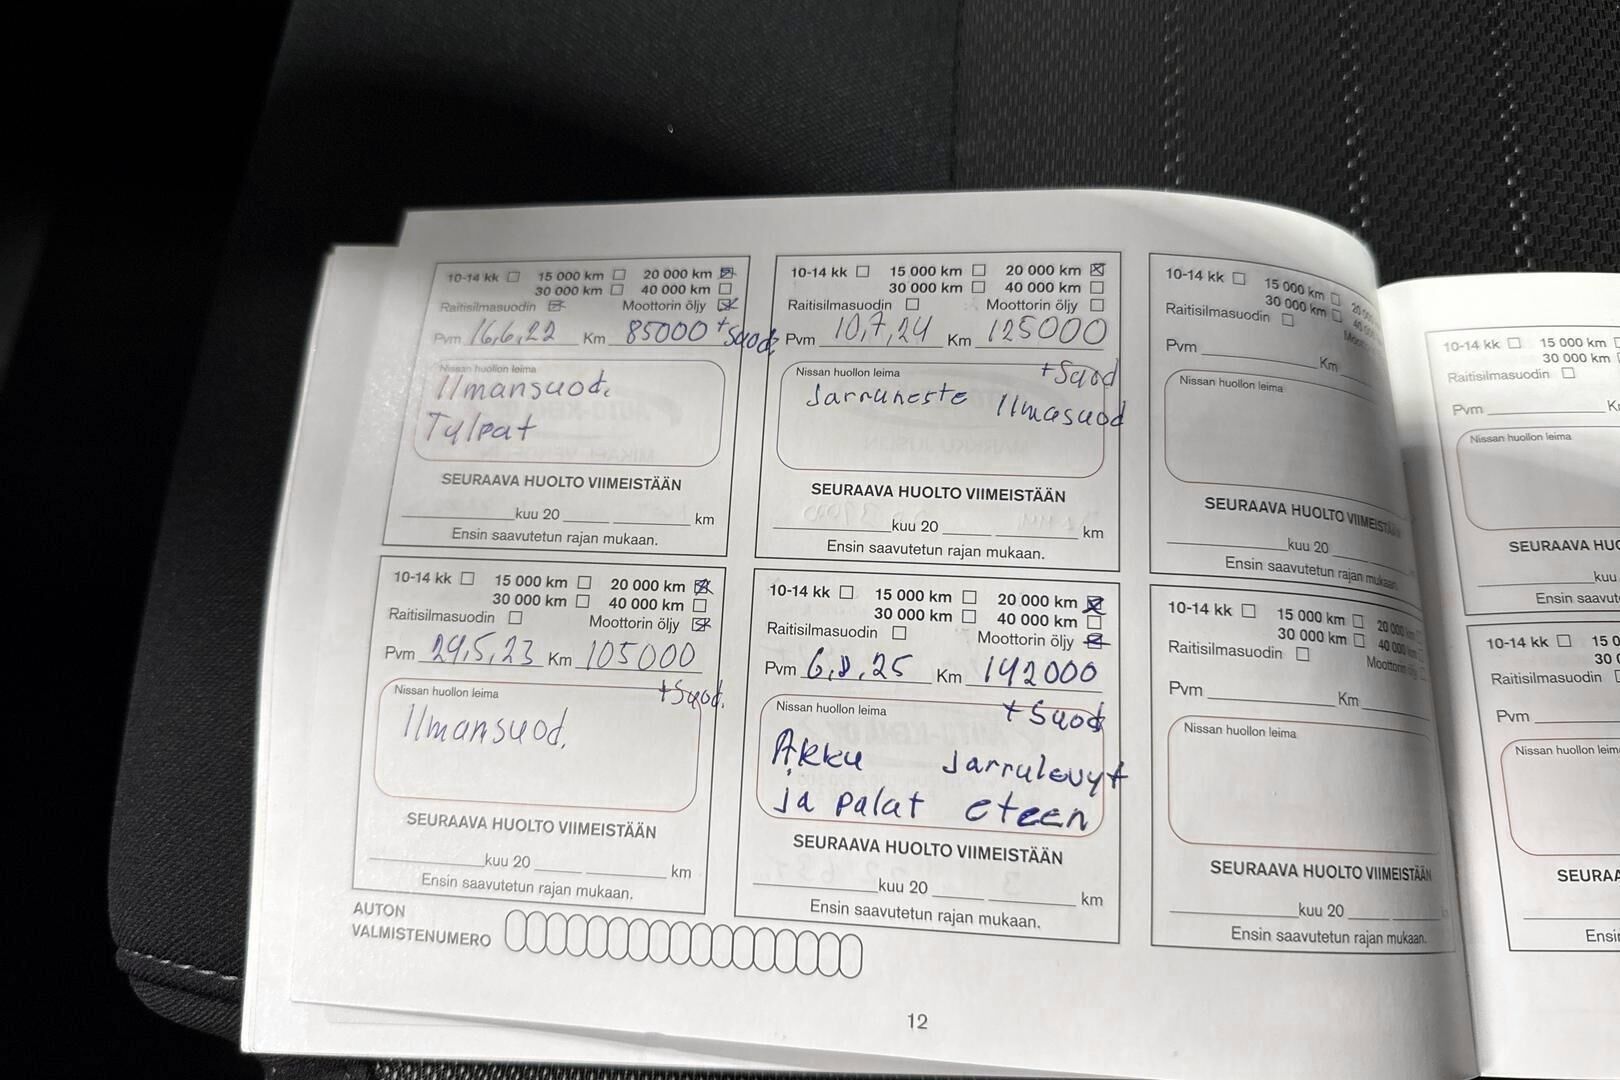 10-14 kk 15 000 km 20 000 km
30 000 km 40 000 km
Raitisilmasuodin Moottorin öljy
Pvm 16,6,22 Km 85000 + Suod.
Nissan huollon leima
Ilmansuod.
Tulpat
SEURAAVA HUOLTO VIIMEISTÄÄN
kuu 20 km
Ensin saavutetun rajan mukaan.
10-14 kk 15 000 km 20 000 km
30 000 km 40 000 km
Raitisilmasuodin Moottorin öljy
Pvm 10,7,24 Km 125000
Nissan huollon leima + Suod
Jarruneste Ilmasuod
SEURAAVA HUOLTO VIIMEISTÄÄN
kuu 20 km
Ensin saavutetun rajan mukaan.
10-14 kk 15 000 km 20 000
30 000 km 40
Raitisilmasuodin
Pvm Km
Nissan huollon leima
SEURAAVA HUOLTO VIIMEISTÄÄN
kuu 20
Ensin saavutetun rajan mukaan.
10-14 kk 15 000 km
30 000 km
Raitisilmasuodin
Pvm
Nissan huollon leima
SEURAAVA HUO
kuu
Ensin saavut
10-14 kk 15 000 km 20 000 km
30 000 km 40 000 km
Raitisilmasuodin Moottorin öljy
Pvm 29,5,23 Km 105000
Nissan huollon leima + Suod.
Ilmansuod.
SEURAAVA HUOLTO VIIMEISTÄÄN
kuu 20 km
Ensin saavutetun rajan mukaan.
10-14 kk 15 000 km 20 000 km
30 000 km 40 000 km
Raitisilmasuodin Moottorin öljy
Pvm 6,8,25 Km 142000
Nissan huollon leima + Suod
Akku Jarrulevyt
ja palat eteen
SEURAAVA HUOLTO VIIMEISTÄÄN
kuu 20 km
Ensin saavutetun rajan mukaan.
10-14 kk 15 000 km 20 000 km
30 000 km 40 000 km
Raitisilmasuodin Moottorin öljy
Pvm Km
Nissan huollon leima
SEURAAVA HUOLTO VIIMEISTÄÄN
kuu 20
Ensin saavutetun rajan mukaan.
10-14 kk 15 0
30 0
Raitisilmasuodin
Pvm
Nissan huollon leim
SEURAA
Ensi
AUTON
VALMISTENUMERO
12